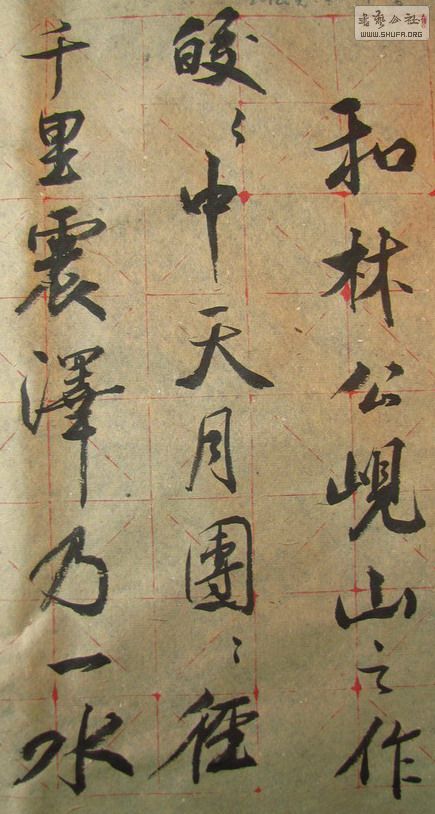 和林公峴山之作
皎〻中天月團〻徑
千里震澤乃一水
書藝公社
WWW.SHUFA.ORG